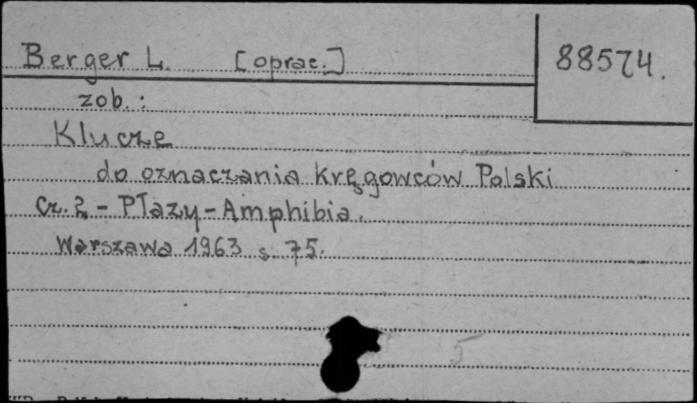 Berger L. [oprac.] 88574.
zob.:
Klucze
do oznaczania kręgowców Polski
Cz. 2 - Płazy - Amphibia.
Warszawa 1963 s. 75.
5